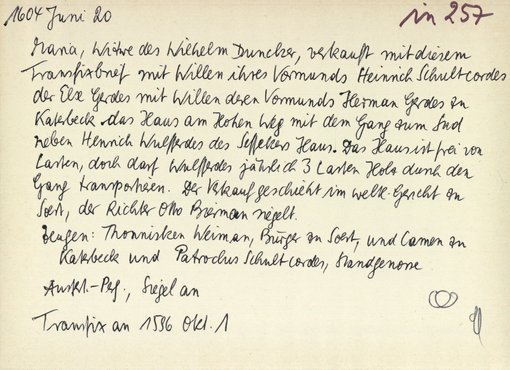 1604 Juni 20
in 257
Maria, Witwe des Wilhelm Duncker, verkauft mit diesem
Transfixbrief mit Willen ihres Vormunds Heinrich Schultcordes
der Else Gerdes mit Willen deren Vormunds Herman Gerdes zu
Katerbeck das Haus am Hohen Weg mit dem Gang zum Sud
neben Henrich Wulfferdes des Haus. Das Haus ist frei von
Lasten, doch darf Wulfferdes jährlich 3 Lasten Holz durch den
Gang transportieren. Der Verkauf geschieht im weltl. Gericht zu
Soest, der Richter Otto siegelt.
Zeugen: Thonnisken Weiman, Bürger zu Soest, und zu
Katerbeck und Patroclus Schultcordes, Standgenosse
Ausf.-Perg., Siegel an
Transfix an 1596 Okt. 1